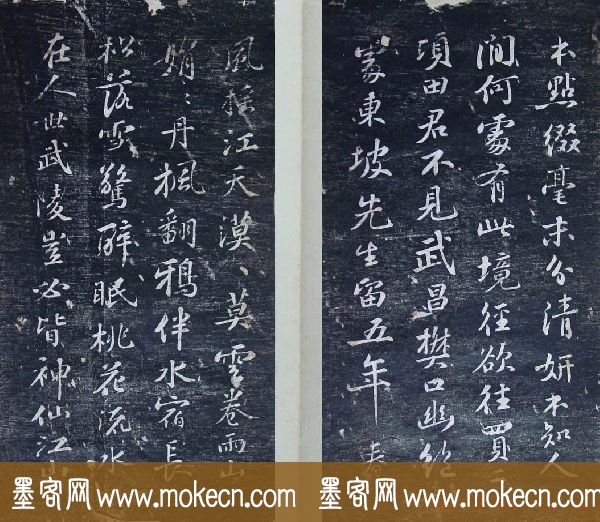 本點綴毫末分清妍不知人
間何處有此境徑欲往買
頃田君不見武昌樊口幽絕
處東坡先生留五年春
風搖江天漠〻莫雲卷雨山
娟〻丹楓翻鴉伴水宿長
松落雪驚醉眠桃花流水
在人世武陵豈必皆神仙江山
墨客网 www.mokecn.com
墨客网 www.mokecn.com